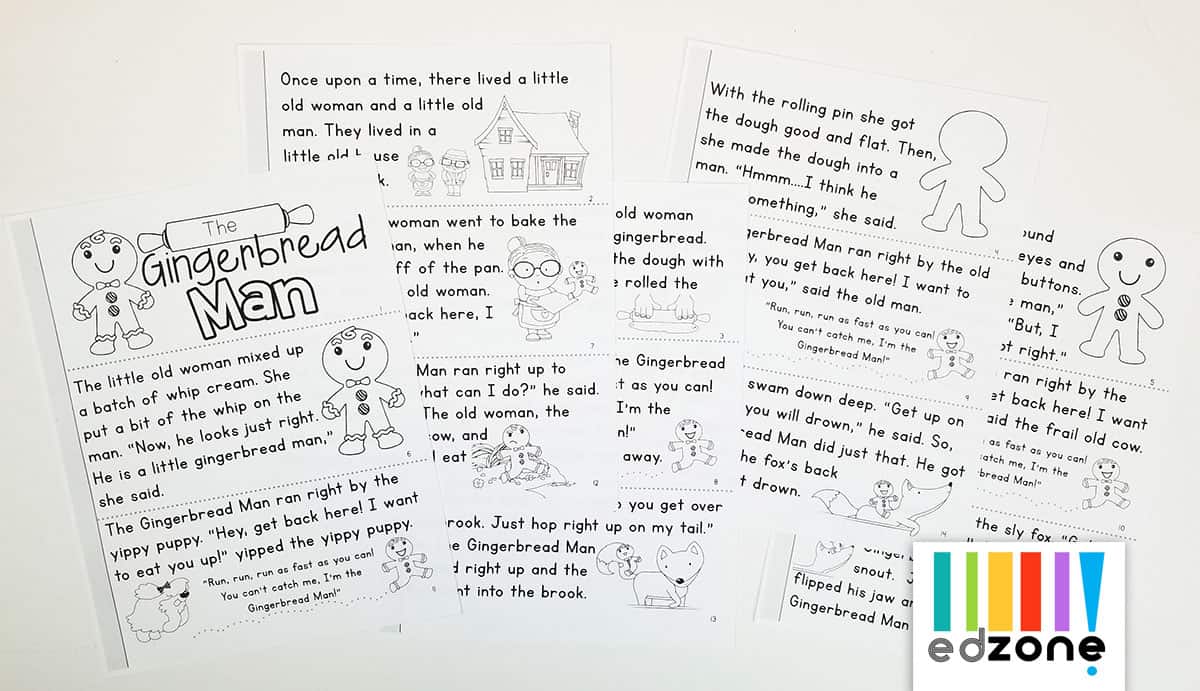 The
Gingerbread
Man
1
The little old woman mixed up
a batch of whip cream. She
put a bit of the whip on the
man. "Now, he looks just right.
He is a little gingerbread man,"
she said.
6
The Gingerbread Man ran right by the
yippy puppy. "Hey, get back here! I want
to eat you up!" yipped the yippy puppy.
"Run, run, run as fast as you can!
You can't catch me, I'm the
Gingerbread Man!"
Once upon a time, there lived a little
old woman and a little old
man. They lived in a
little old
use
k.
2
woman went to bake the
an, when he
ff of the pan.
old woman.
back here, I
"
7
Man ran right up to
what can I do?" he said.
The old woman, the
cow, and
eat
12
old woman
gingerbread.
the dough with
e rolled the
3
he Gingerbread
t as you can!
I'm the
n!"
away.
8
o you get over
brook. Just hop right up on my tail."
he Gingerbread Man
d right up and the
nt into the brook.
13
With the rolling pin she got
the dough good and flat. Then,
she made the dough into a
man. "Hmmm....I think he
omething," she said.
4
gerbread Man ran right by the old
y, you get back here! I want to
t you," said the old man.
"Run, run, run as fast as you can!
You can't catch me, I'm the
Gingerbread Man!"
9
swam down deep. "Get up on
you will drown," he said. So,
read Man did just that. He got
he fox's back
t drown.
14
ound
eyes and
buttons.
e man,"
"But, I
ot right."
5
ran right by the
et back here! I want
aid the frail old cow.
as fast as you can!
catch me, I'm the
bread Man!"
10
the sly fox.
snout.
flipped his jaw an
Gingerbread Man
edzone